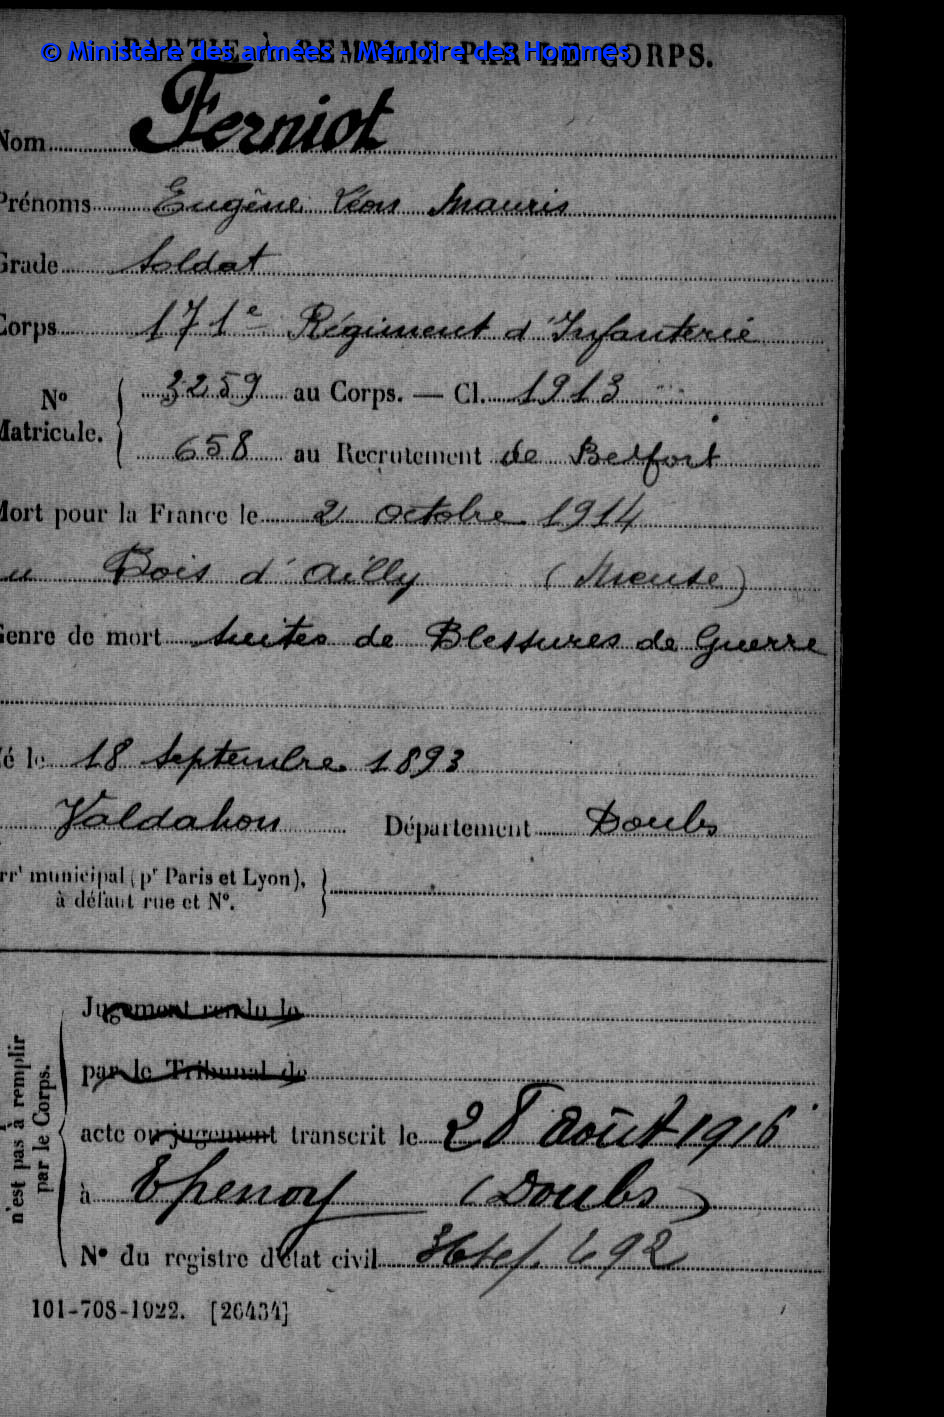 PARTIE À REMPLIR PAR LE CORPS.
© Ministère des armées - Mémoire des Hommes
Nom Ferniot
Prénoms Eugène Léon Mauris
Grade Soldat
Corps 171e Régiment d'Infanterie
No Matricule. { 3259 au Corps. — Cl. 1913
658 au Recrutement de Belfort
Mort pour la France le 2 octobre 1914
u Bois d'Ailly (Meuse)
Genre de mort suites de Blessures de Guerre
é le 18 Septembre 1893
Valdahon Département Doubs
rrt municipal (pr Paris et Lyon),
à défaut rue et No.
Jugement rendu le
par le Tribunal de
acte ou jugement transcrit le 28 août 1916
à Epenoy (Doubs)
No du registre d'état civil 692
n'est pas à remplir
par le Corps.
101-708-1922. [26434]